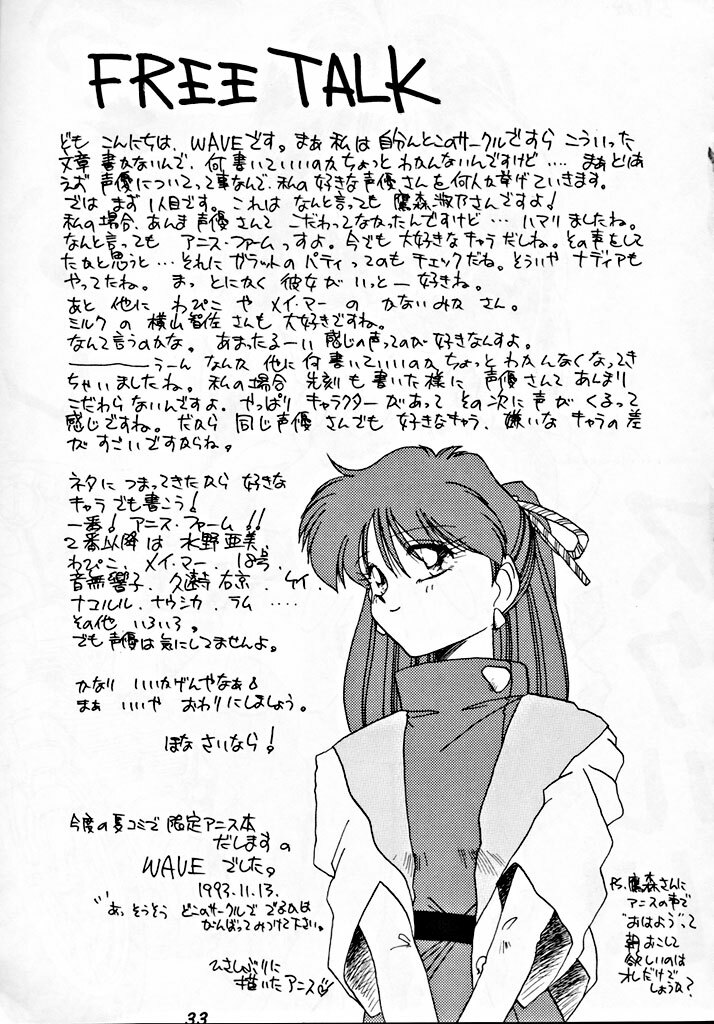 FREE TALK
ども こんにちは、WAVEです。まぁ 私は 自分んとこのサークルですら こういった
文章 書かないんで、何書いていいのか ちょっと わかんないんですけど‥‥ まぁ とりあ
えず 声優についてって事なんで、私の好きな声優さんを何人か挙げていきます。
では まず 1人目です。これは なんと言っても 鷹森淑乃さんですよ!
私の場合、あんま声優さんて こだわってなかったんですけど‥ ハマリましたね。
なんと言っても アニス・ファームっすよ。今でも 大好きなキャラだしね。その声をして
たかと思うと‥ それに ガラットの パティってのも チェックだね。そういや ナディアも
やってたね。 まっ とにかく 彼女が いっとー好きね。
あと 他に わぴこ や メイ・マー の かないみか さん。
ミルク の 横山智佐 さんも 大好きですね。
なんて言うのかな。あまったるーい 感じの声ってのが好きなんすよ。
うーん なんか 他に何書いていいのか ちょっと わかんなくなってき
ちゃいましたね。私の場合 先刻も 書いた様に 声優さんて あんまり
こだわらないんですよ。やっぱり キャラクターがあって その次に 声が くるって
感じですね。だから 同じ声優 さんでも 好きなキャラ、嫌いな キャラの差
が すごいですからね。
ネタに つまってきたから 好きな
キャラでも書こう!
一番! アニス・ファーム!!
2番以降は 水野亜美、
わぴこ、メイ・マー、18号、
音無響子、久遠寺右京、ケイ、
ナコルル、ナウシカ、ラム ‥‥
その他 いろいろ。
でも 声優は気にしてませんよ。
かなり いいかげんやなぁ
まぁ いいや おわりにしましょう。
ほな さいなら!
今度の夏コミで 限定アニス本
だしますの
WAVE でした。
1993.11.13.
"あっ、そうそう どこのサークルで でるかは
がんばってみつけて下さい。
ひさしぶりに
描いたアニス♡
P.S.鷹森さんに
アニスの声で
"おはよう"って
朝おこして
欲しいのは
オレだけで
しょうか?
33